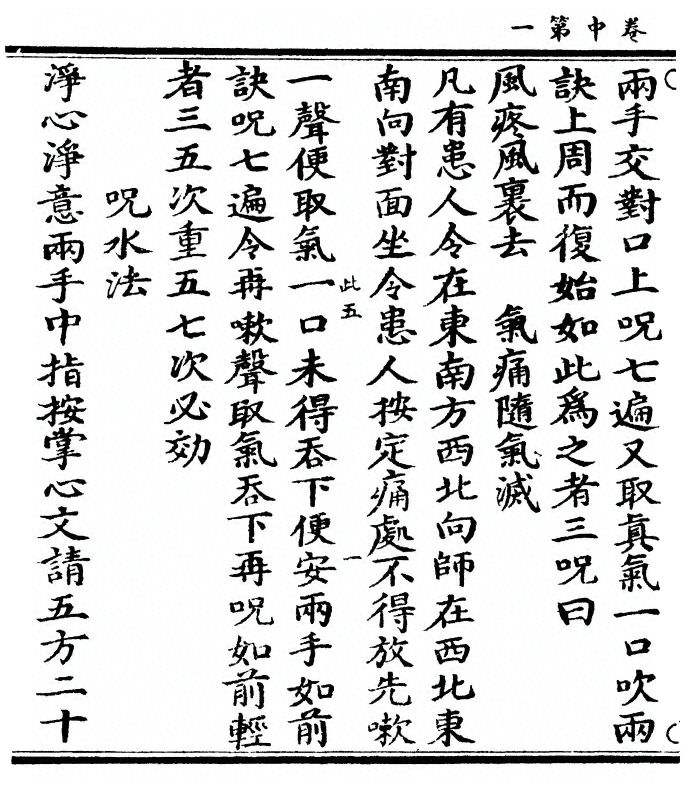 卷中第一
兩手交對口上呪七遍又取眞氣一口吹兩
訣上周而復始如此爲之者三呪曰
風疼風裏去　氣痛隨氣滅
凡有患人令在東南方西北向師在西北東
南向對面坐令患人按定痛處不得放先嗽
此五
一
一聲便取氣一口未得吞下便安兩手如前
訣呪七遍令再嗽聲取氣吞下再呪如前輕
者三五次重五七次必効
呪水法
淨心淨意兩手中指按掌心文請五方二十